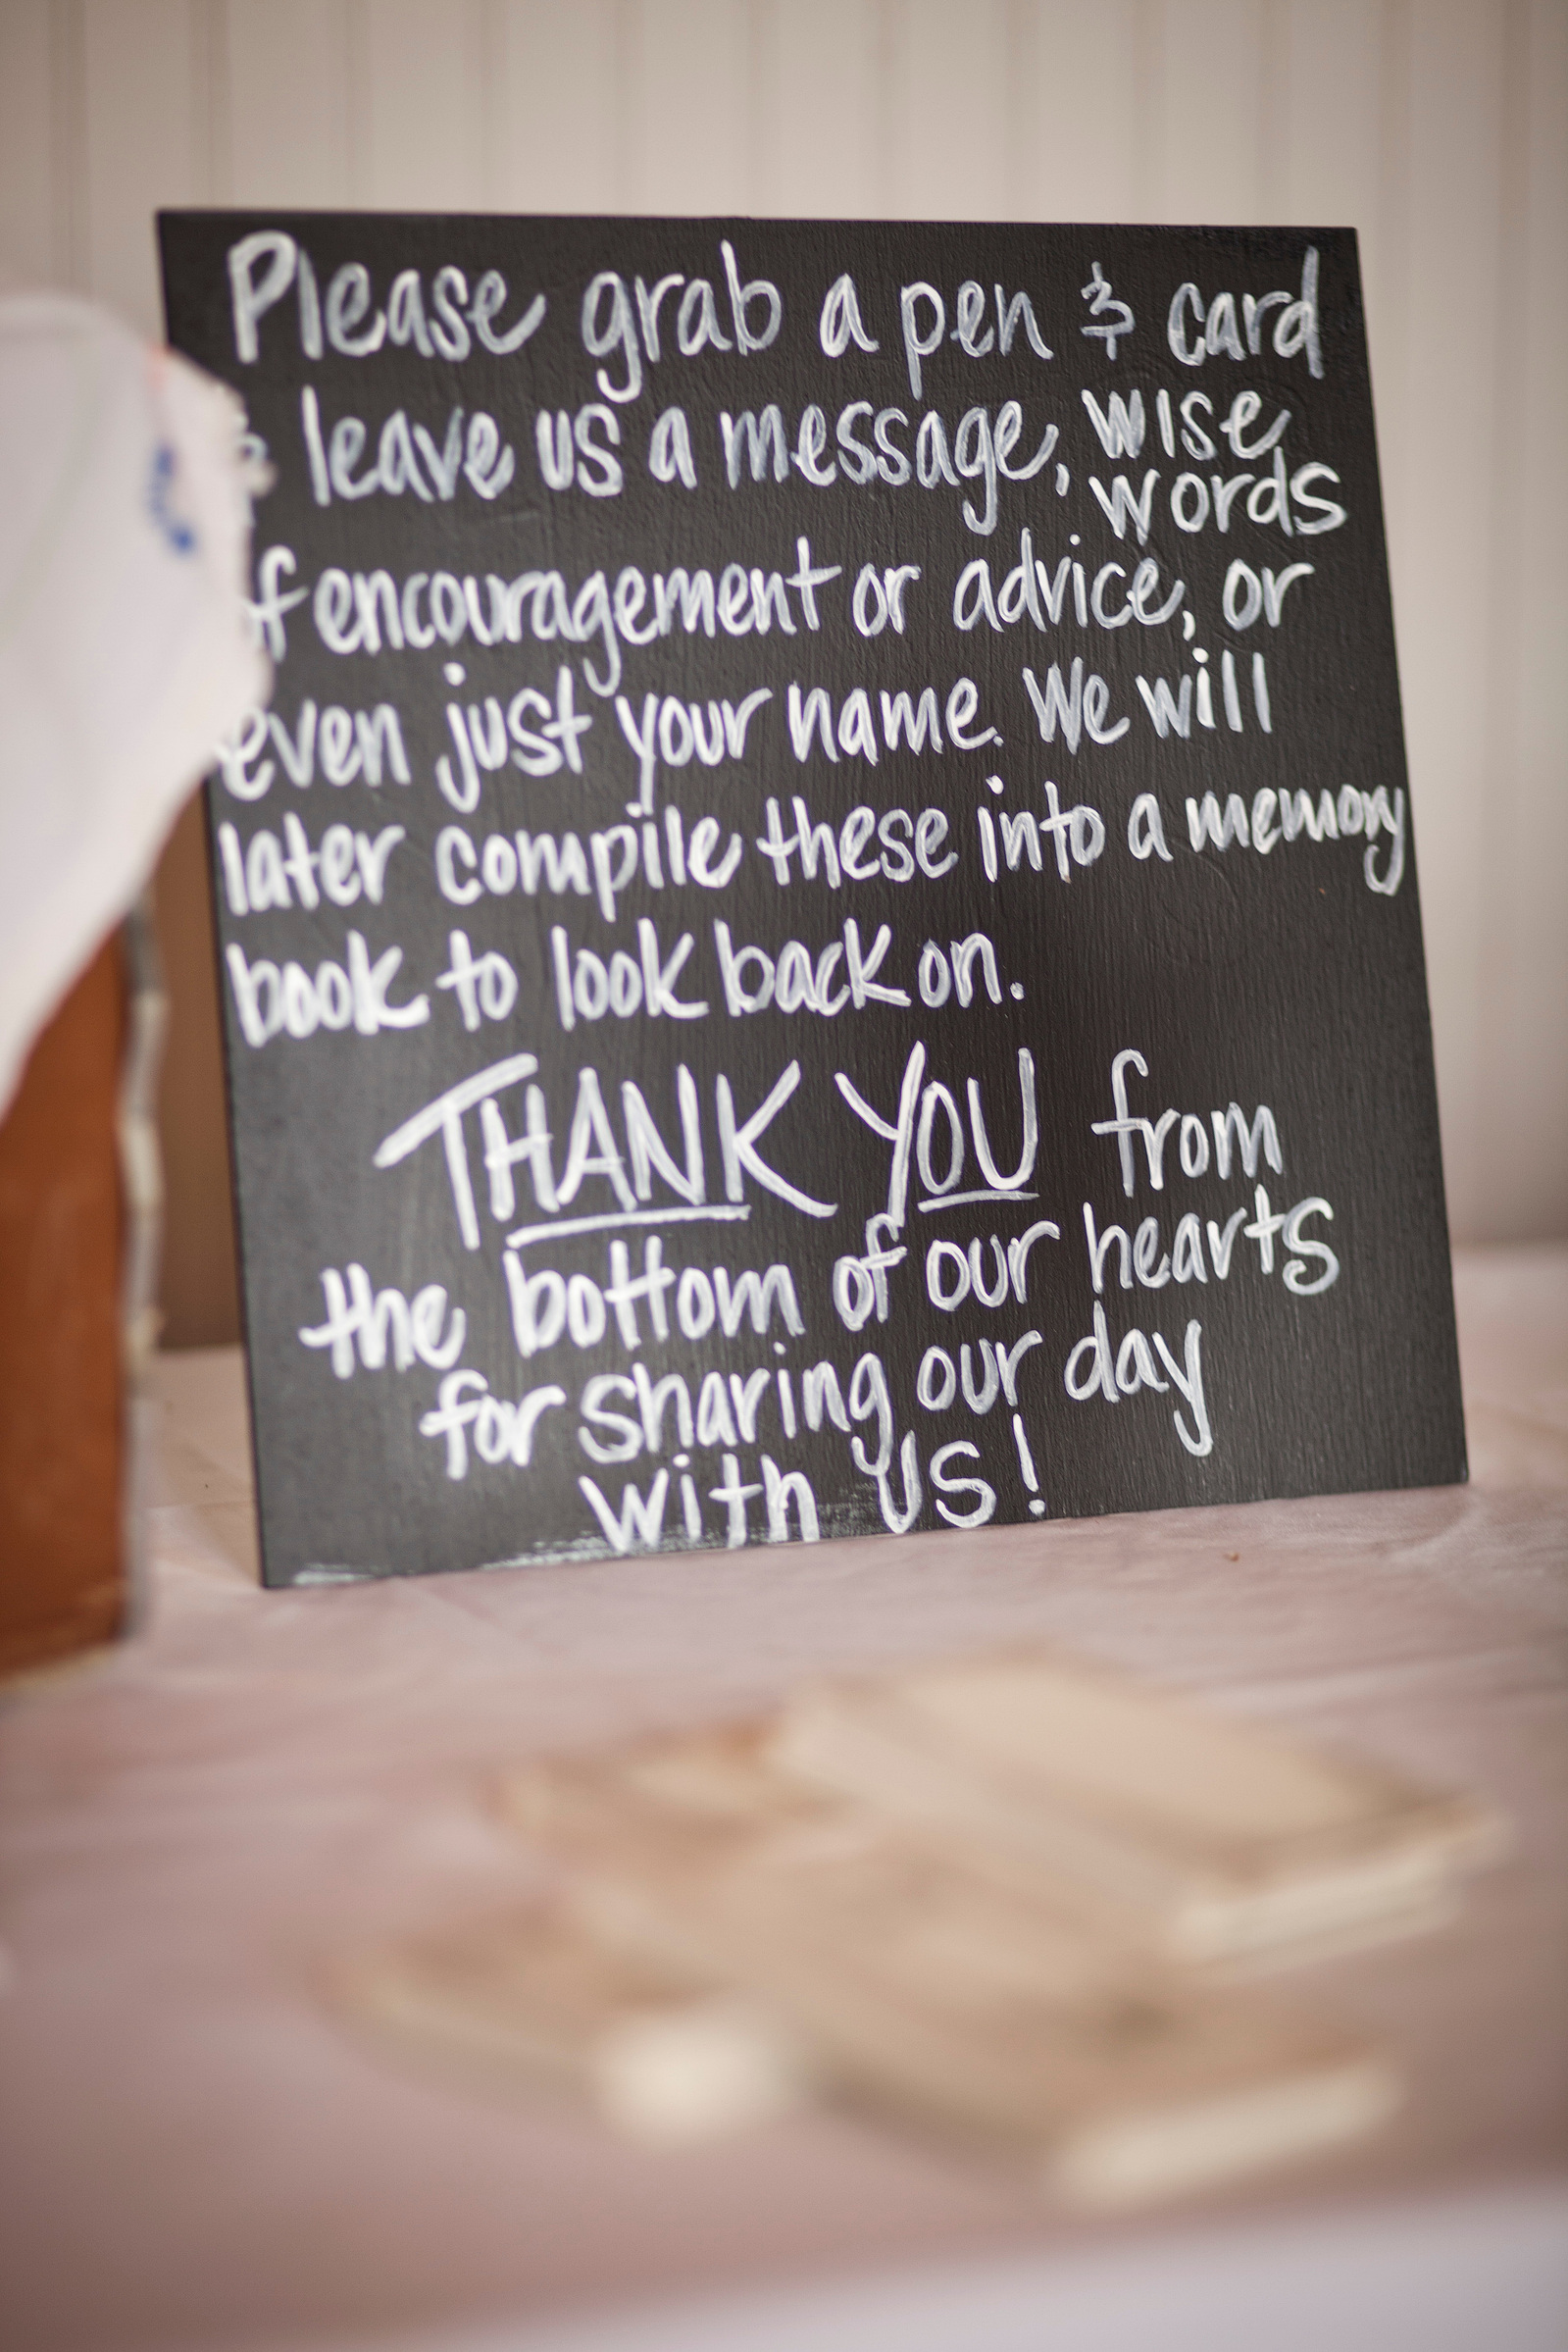 Please grab a pen & card
& leave us a message, wise
words
of encouragement or advice, or
even just your name. We will
later compile these into a memory
book to look back on.
THANK YOU from
the bottom of our hearts
for sharing our day
with us!